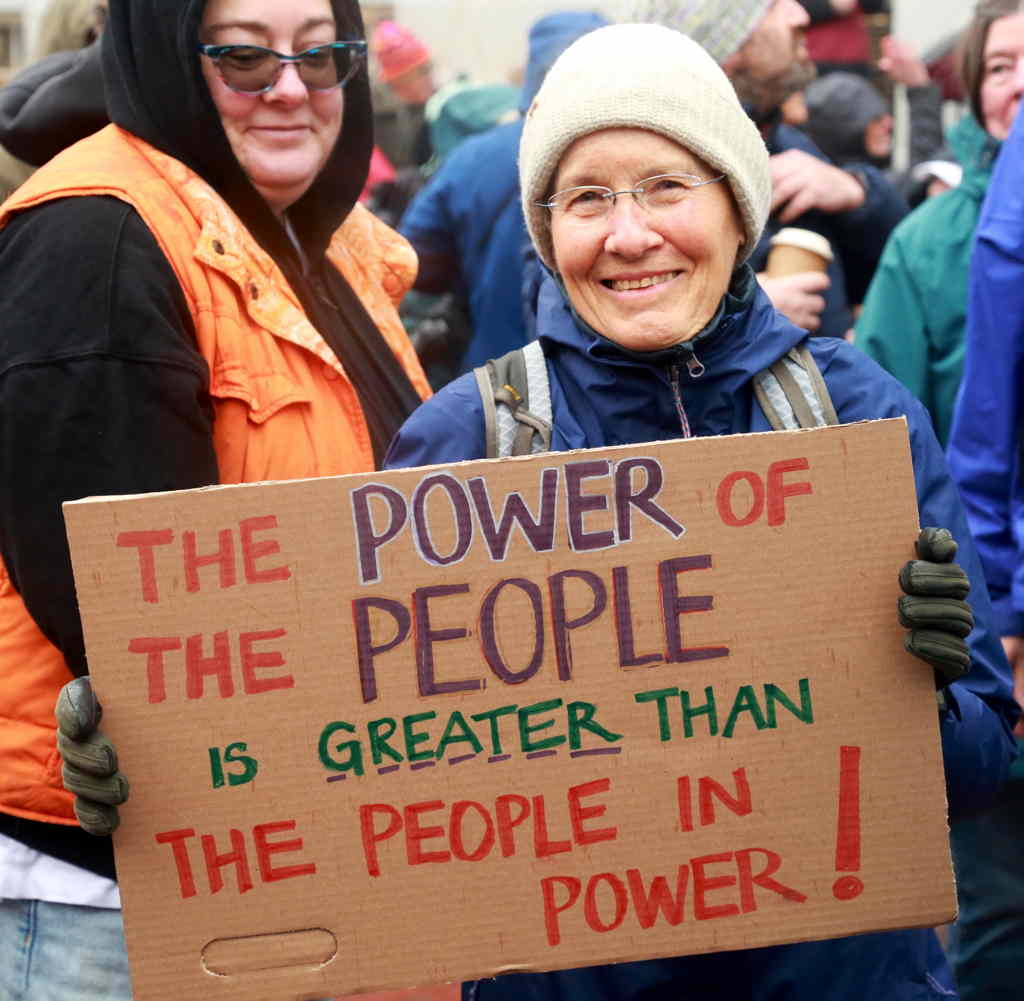 THE POWER OF
THE PEOPLE
IS GREATER THAN
THE PEOPLE IN
POWER!